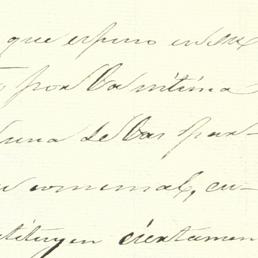 que espero en su
por la íntima
una de las par-
comensal, cu-
tituyen ciertamen